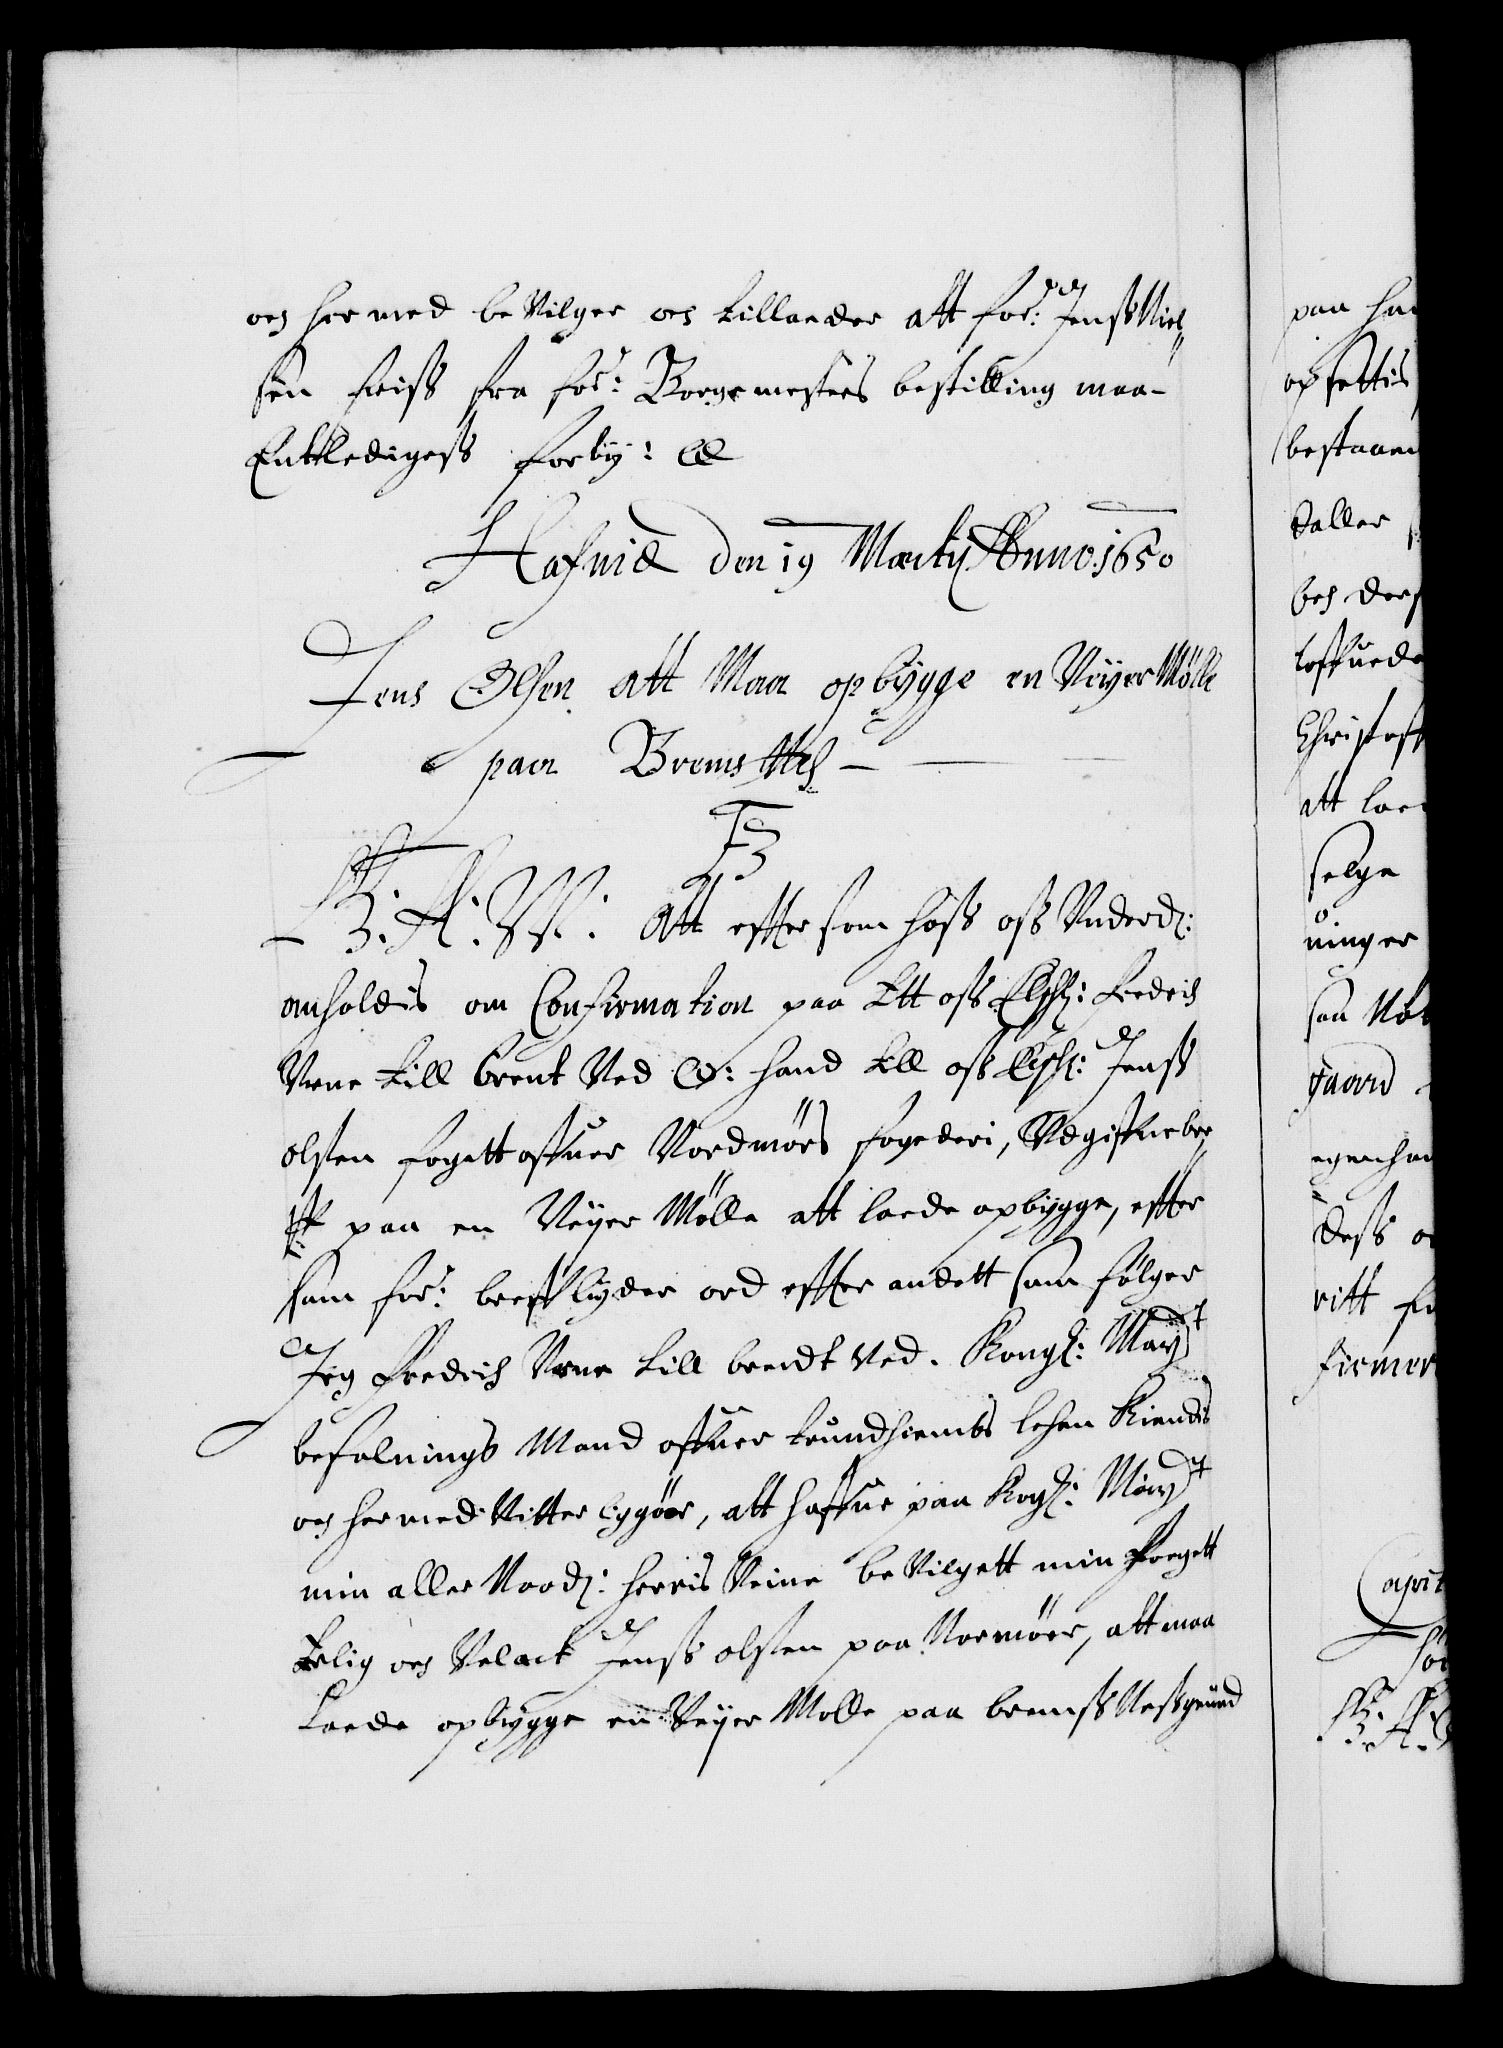 och hermed be Vilger och tillader att for: Jenß Niel
sen friß fra for: Borgemesters bestilling maa-
Entledigeß forby: &
Hafniæ den 19 Martij Anno. 1650
Jens Olsen att Maa opbÿgge en Veÿer Mölle
paa Brems Neß
F3
G: A: W: att effter som hoß oß Underd:
anholdis om Confirmation paa Ett oß Elsk: Fredrich
Urne till Brent Ved &: hand till oß Elsk: Jenß
olsen fogett offuer Nordmörs fogederi, Udgiffue bre
ff paa en Veÿer Mölle att lade opbygge, effter
som for: breff lyder ord effter andett som følger
Jeg Fredrich Urne till brendt Ved. Kongl: Maytt
befalnings Mand offuer trundhiembs lehen Kiendis
och hermed Vitterliggör, att haffue paa Kogl: Maytt
min aller Naad: herris Veine be Vilgett min Foegett
Erlig och Velact Jenß olsen paa Normöer, att maa
Lade opbygge en Veÿer Molle paa bremß Neß grund
paa
opsettis
bestaaen
daller
och
loffuede
Christoff
att
selge
ninger
saa
gaard
egenhan
deß
ritt
firmer